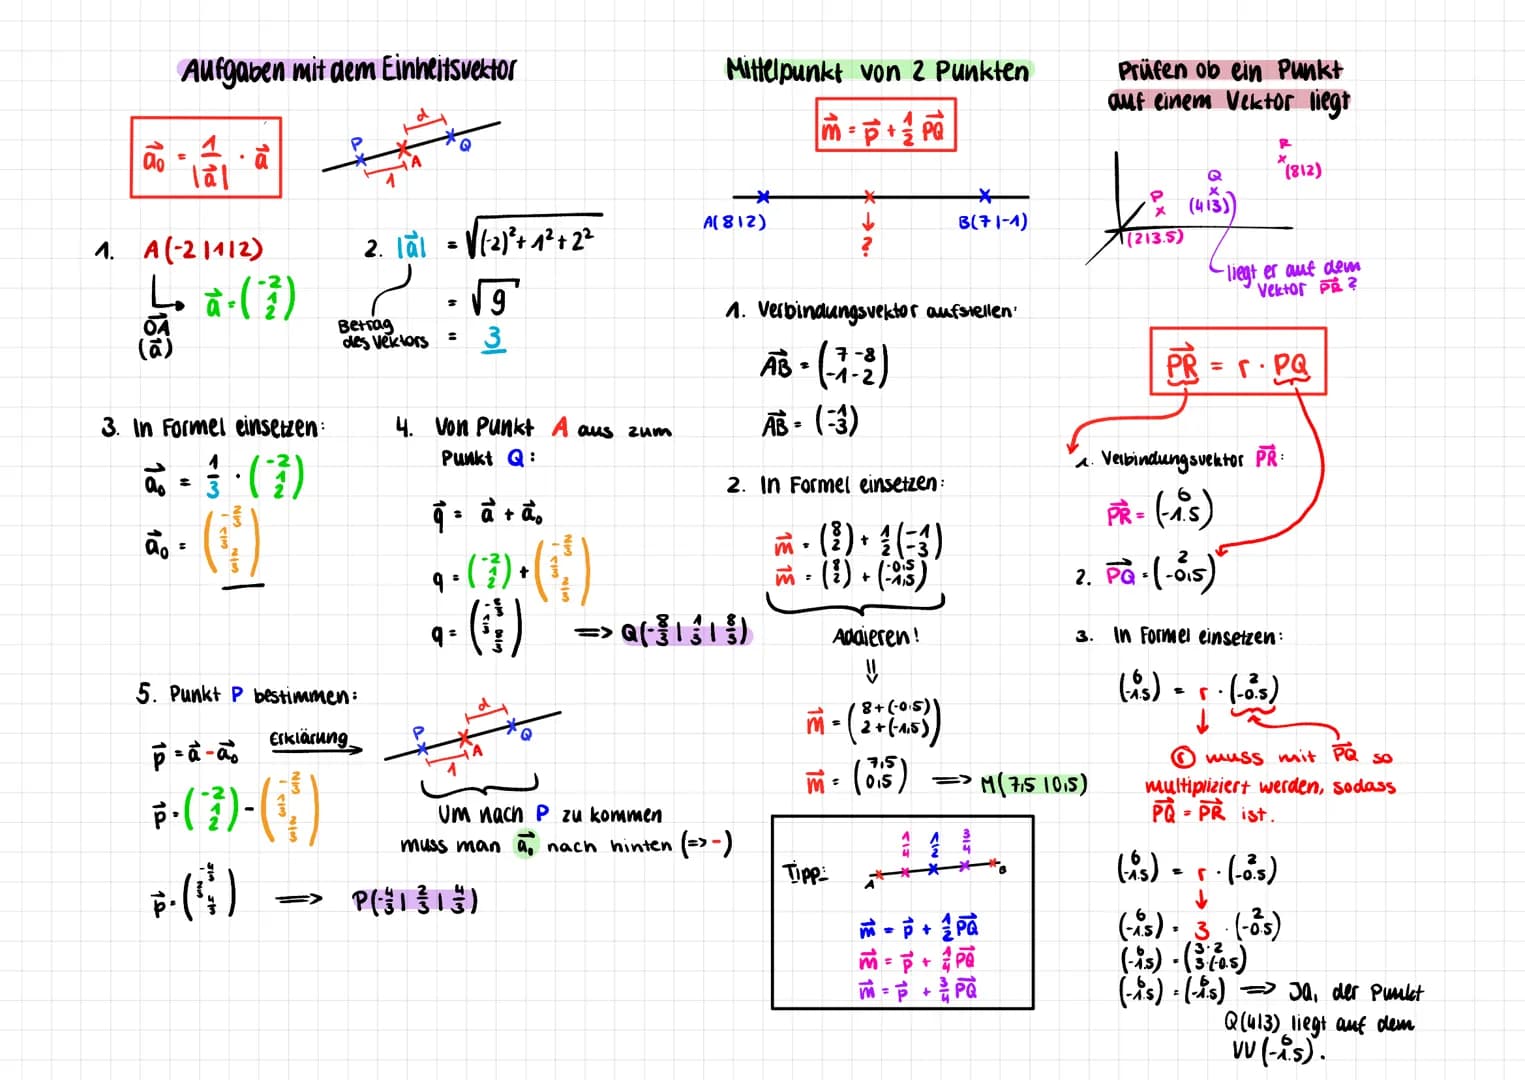 Aufgaben mit dem Einheitsvektor
a⃗₀ = 1/|a⃗| · a⃗
P 1 A d Q
1. A(-2|1|2)
OA⃗ (a⃗)
a⃗ = (-2 1 2)
2. |a⃗| = √((-2)² + 1² + 2²)
= √9
= 3
Betrag
des Vektors
3. In Formel einsetzen:
a⃗₀ = 1/3 · (-2 1 2)
a⃗₀ = (-2/3 1/3 2/3)
4. Von Punkt A aus zum
Punkt Q:
q⃗ = a⃗ + a⃗₀
q = (-2 1 2) + (-2/3 1/3 2/3)
q = (-8/3 1/3 8/3) => Q(-8/3 | 1/3 | 8/3)
5. Punkt P bestimmen:
p⃗ = a⃗ - a⃗₀ Erklärung
p⃗ = (-2 1 2) - (-2/3 1/3 2/3)
p⃗ = (-4/3 2/3 4/3) => P(-4/3 | 2/3 | 4/3)
P 1 A d Q
Um nach P zu kommen
muss man a⃗₀ nach hinten (=> -)
Mittelpunkt von 2 Punkten
m⃗ = p⃗ + 1/2 PQ⃗
A(8|2) ? B(7|-1)
1. Verbindungsvektor aufstellen:
AB⃗ = (7-8 -1-2)
AB⃗ = (-1 -3)
2. In Formel einsetzen:
m⃗ = (8 2) + 1/2 (-1 -3)
m⃗ = (8 2) + (-0,5 -1,5)
Addieren!
m⃗ = (8+(-0,5) 2+(-1,5))
m⃗ = (7,5 0,5) => M(7,5|0,5)
Tipp:
1/4 1/2 3/4
A B
m⃗ = p⃗ + 1/2 PQ⃗
m⃗ = p⃗ + 1/4 PQ⃗
m⃗ = p⃗ + 3/4 PQ⃗
Prüfen ob ein Punkt
auf einem Vektor liegt
R
(8|2)
Q
(4|3)
P
(2|3.5)
liegt er auf dem
Vektor PR⃗ ?
PR⃗ = r · PQ⃗
1. Verbindungsvektor PR⃗:
PR⃗ = (6 -1.5)
2. PQ⃗ = (2 -0,5)
3. In Formel einsetzen:
(6 -1.5) = r · (2 -0.5)
r muss mit PQ⃗ so
multipliziert werden, sodass
PQ⃗ = PR⃗ ist.
(6 -1.5) = r · (2 -0.5)
(6 -1.5) = 3 · (2 -0.5)
(6 -1.5) = (3·2 3·(-0.5)
(6 -1.5) = (6 -1.5) => Ja, der Punkt
Q(4|3) liegt auf dem
VV (6 -1.5).